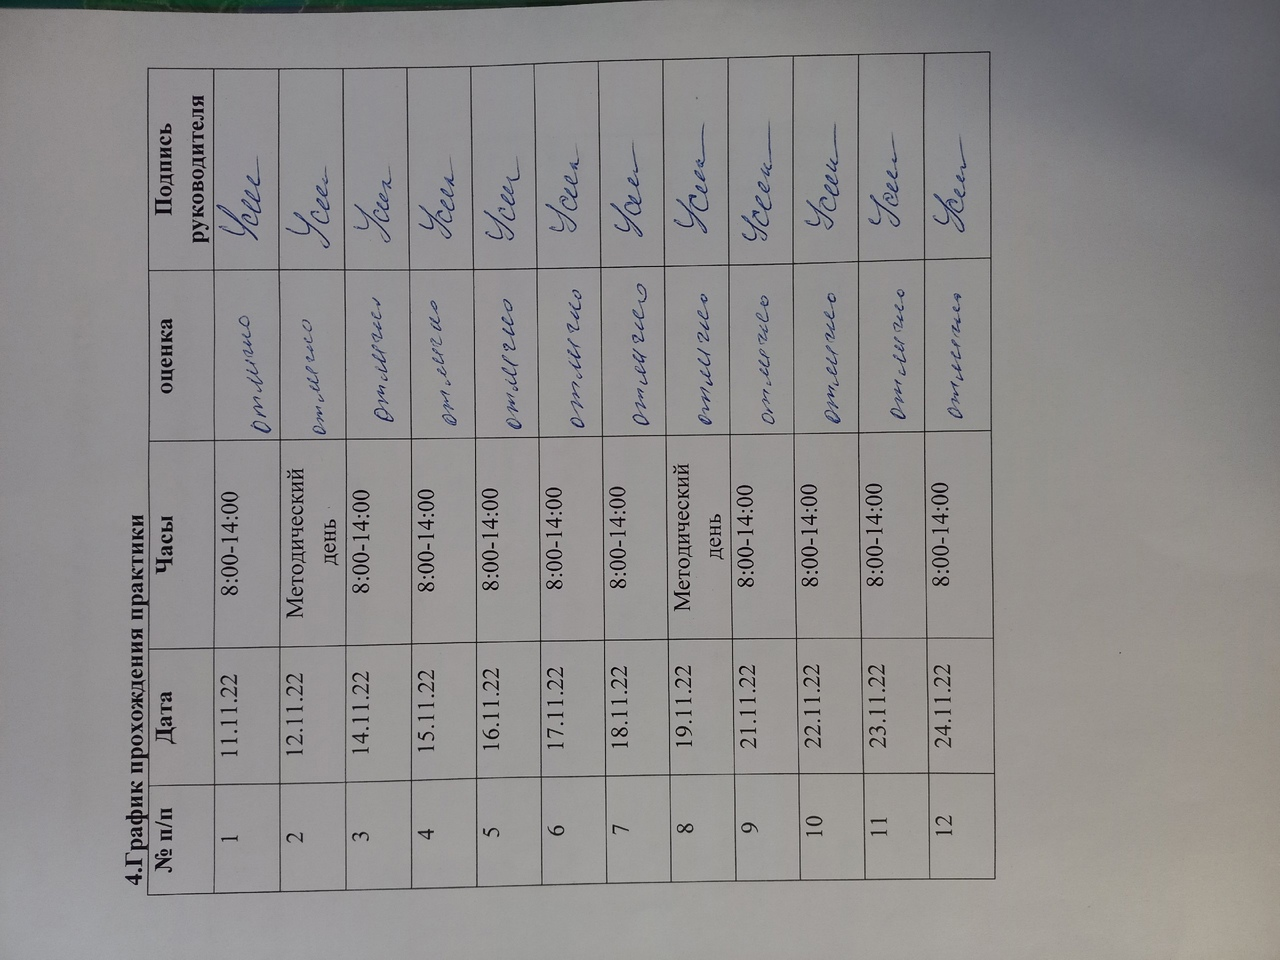 4.График прохождения практики
№ п/п Дата Часы оценка Подпись руководителя
1 11.11.22 8:00-14:00 отлично
2 12.11.22 Методический день отлично
3 14.11.22 8:00-14:00 отлично
4 15.11.22 8:00-14:00 отлично
5 16.11.22 8:00-14:00 отлично
6 17.11.22 8:00-14:00 отлично
7 18.11.22 8:00-14:00 отлично
8 19.11.22 Методический день отлично
9 21.11.22 8:00-14:00 отлично
10 22.11.22 8:00-14:00 отлично
11 23.11.22 8:00-14:00 отлично
12 24.11.22 8:00-14:00 отлично